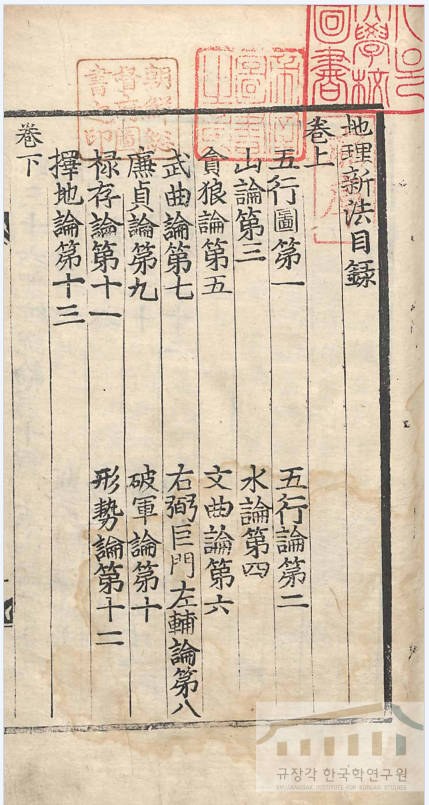 地理新法目録
卷上
五行圖第一 五行論第二
山論第三 水論第四
貪狼論第五 文曲論第六
武曲論第七 右弼巨門左輔論第八
廉貞論第九 破軍論第十
禄存論第十一 形勢論第十二
擇地論第十三
卷下
朝鮮総
督府圖
書之印
圖書
규장각 한국학연구원
KYUJANGGAK INSTITUTE FOR KOREAN STUDIES